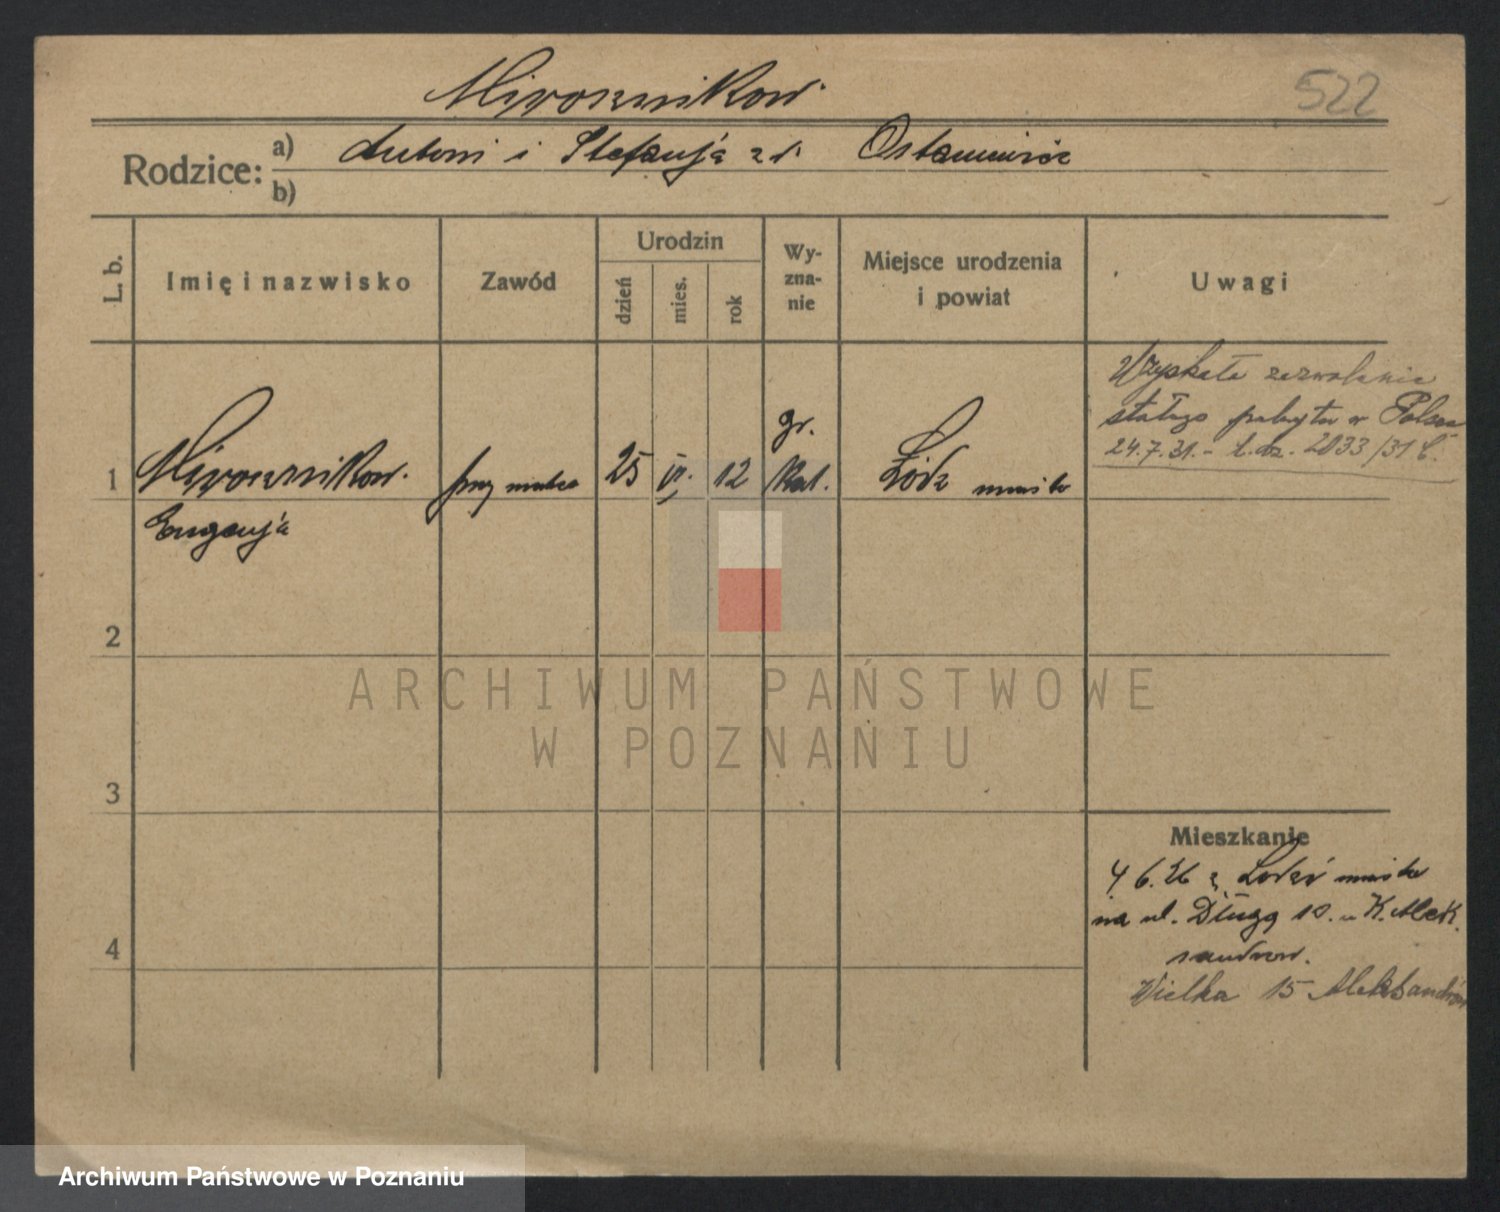 Mirosznikow.
522
Rodzice:
a) Antoni i Stefanja z d.
b)
L. b.
Imię i nazwisko
Zawód
Urodzin
dzień
mies.
rok
Wy-
zna-
nie
Miejsce urodzenia
i powiat
Uwagi
1
Mirosznikow.
Eugenja
przy matce
25
VI.
12
gr.
Kat.
Łódź miasto
Uzyskała zezwolenie
stałego pobytu w Polsce
24.7.31.- L.dz. 2033/31 C.
2
3
4
Mieszkanie
4 6. 26 z Łodzi miasta
na ul. Długą 10. w K. Alek
sandrow.
Wielka 15 Aleksandrów
ARCHIWUM PAŃSTWOWE
W POZNANIU
Archiwum Państwowe w Poznaniu